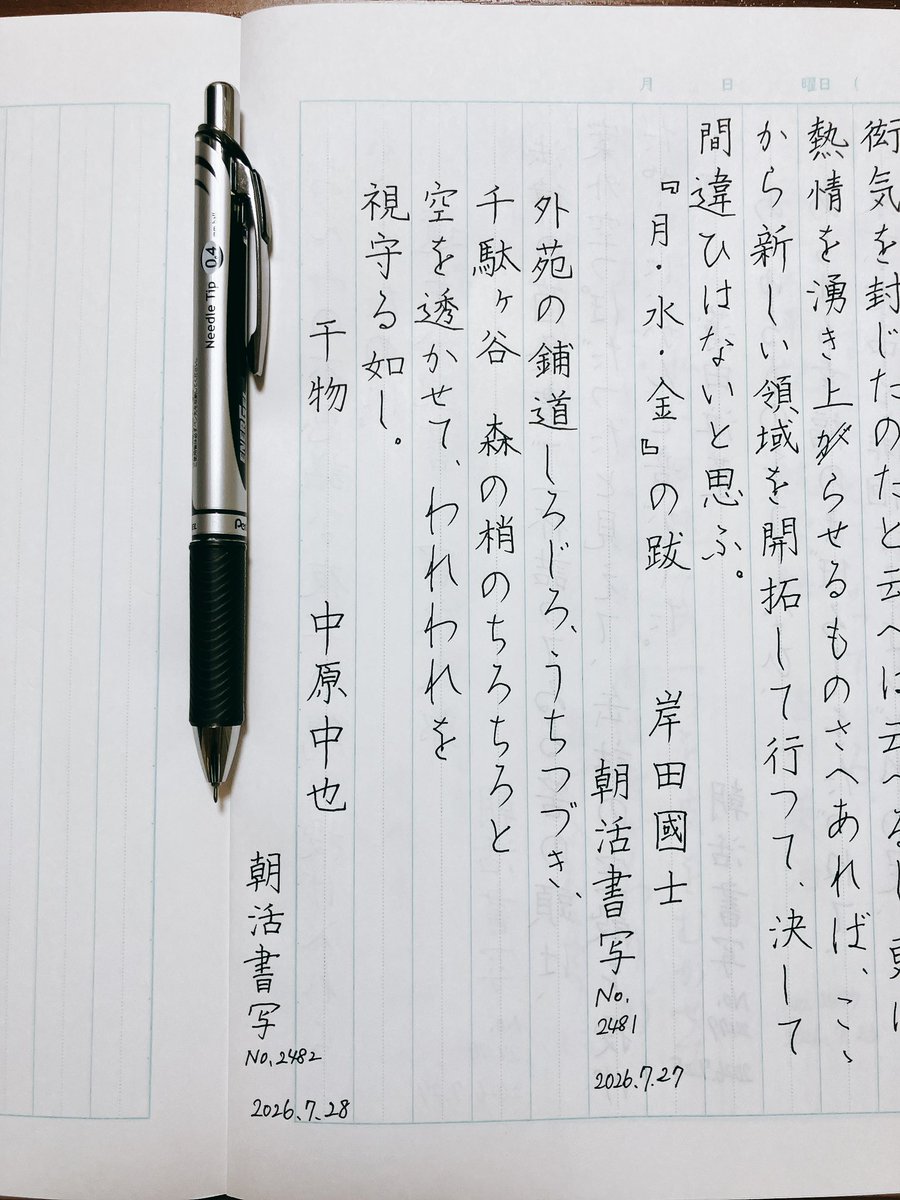 月　日　曜日（
衒気を封じたのだと云へば云へるし、更に
熱情を湧き上がらせるものさへあれば、こゝ
から新しい領域を開拓して行つて、決して
間違ひはないと思ふ。
『月・水・金』の跋　岸田國士
朝活書写
No.
2481
2026.7.27
外苑の鋪道しろじろ、うちつづき、
千駄ヶ谷　森の梢のちろちろと
空を透かせて、われわれを
視守る如し。
干物　中原中也
朝活書写
No.2482
2026.7.28
Needle Tip 0.4
ENERGEL
Pe